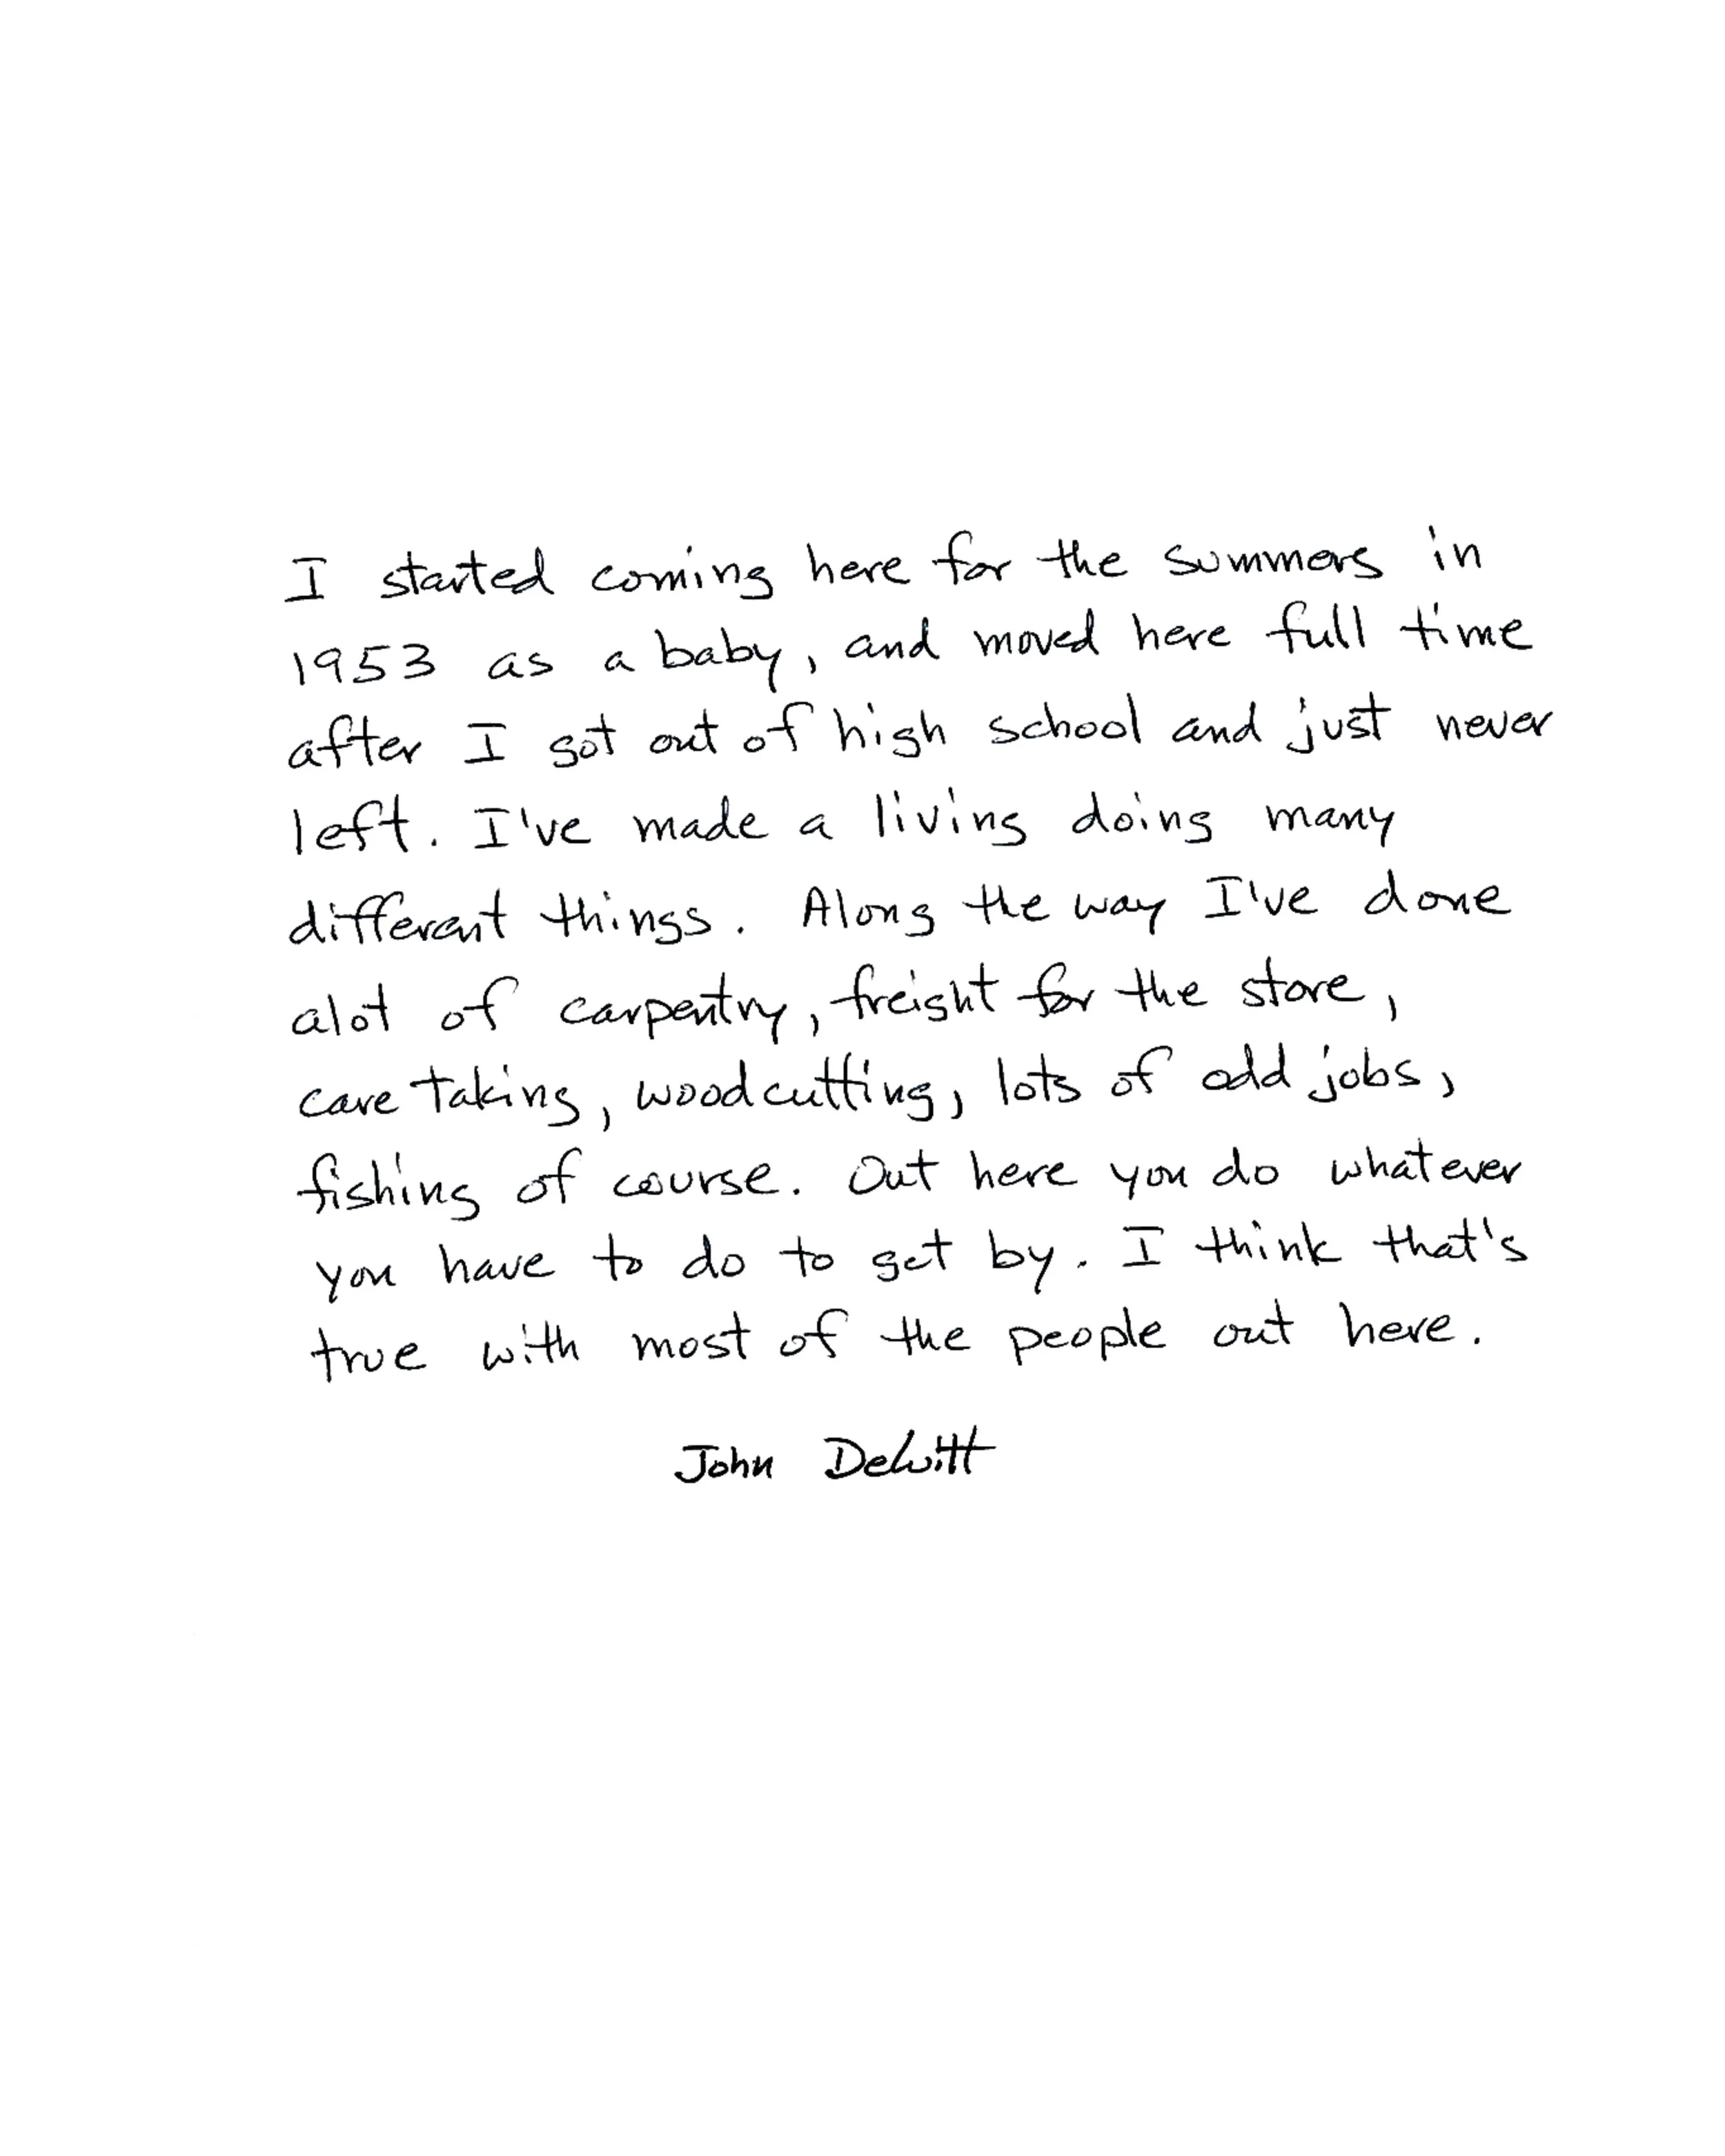 I started coming here for the summers in
1953 as a baby, and moved here full time
after I got out of high school and just never
left. I've made a living doing many
different things. Along the way I've done
alot of carpentry, freight for the store,
care taking, woodcutting, lots of odd jobs,
fishing of course. Out here you do whatever
you have to do to get by. I think that's
true with most of the people out here.
John DeWitt